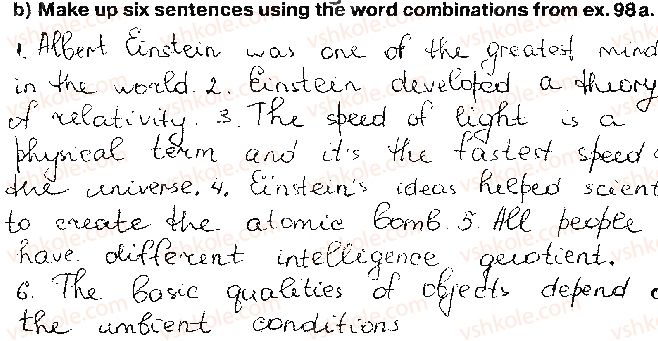 b) Make up six sentences using the word combinations from ex. 98a.
1. Albert Einstein was one of the greatest mind
in the world. 2. Einstein developed a theory
of relativity. 3. The speed of light is a
physical term and it's the fastest speed
the universe. 4. Einstein's ideas helped scient
to create the atomic bomb. 5. All people
have different intelligence quotient.
6. The basic qualities of objects depend
the ambient conditions